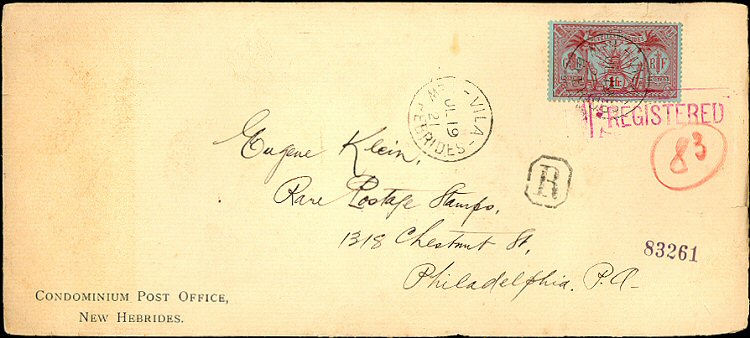 G R
R F
1 fr.
REGISTERED
83
VILA
JL 19
21
NEW HEBRIDES
R
Eugene Klein,
Rare Postage Stamps,
1318 Chestnut St,
Philadelphia. P.A-
83261
CONDOMINIUM POST OFFICE,
NEW HEBRIDES.